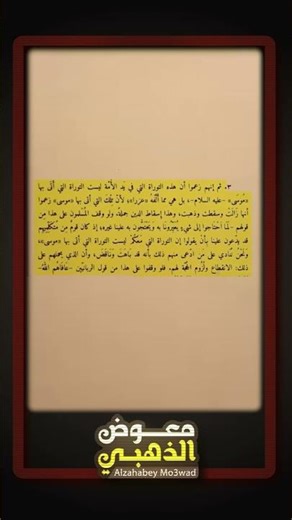 ٣. ثم إنهم زعموا أن هذه التوراة التي في يد الأمة ليست التوراة التي أتى بها
«موسى» -عليه السلام-، بل هي مما ألفه «عزرا»؛ لأن تلك التي أتى بها «موسى» زعموا
أنها زالت وسقطت وذهبت، وهذا إسقاط الدين جملة، ولو وقف المسلمون على هذا من
قولهم -لما احتاجوا إلى شيء يُعيّروننا به ويحتجون به علينا غيره؛ إذ كان قوم من متكلميهم
قد يدعون علينا بأن يقولوا إن التوراة التي معكم ليست التوراة التي أتى بها «موسى»،
ونحن ننادي على من ادعى منهم ذلك بأنه قد باهت وناقض، وأن الذي يحملهم على
ذلك: الانقطاع ولزوم الحجة لهم، فلو وقفوا على هذا من قول الربانيين -عافاهم الله-
معوض
الذهبي
Alzahabey Mo3wad